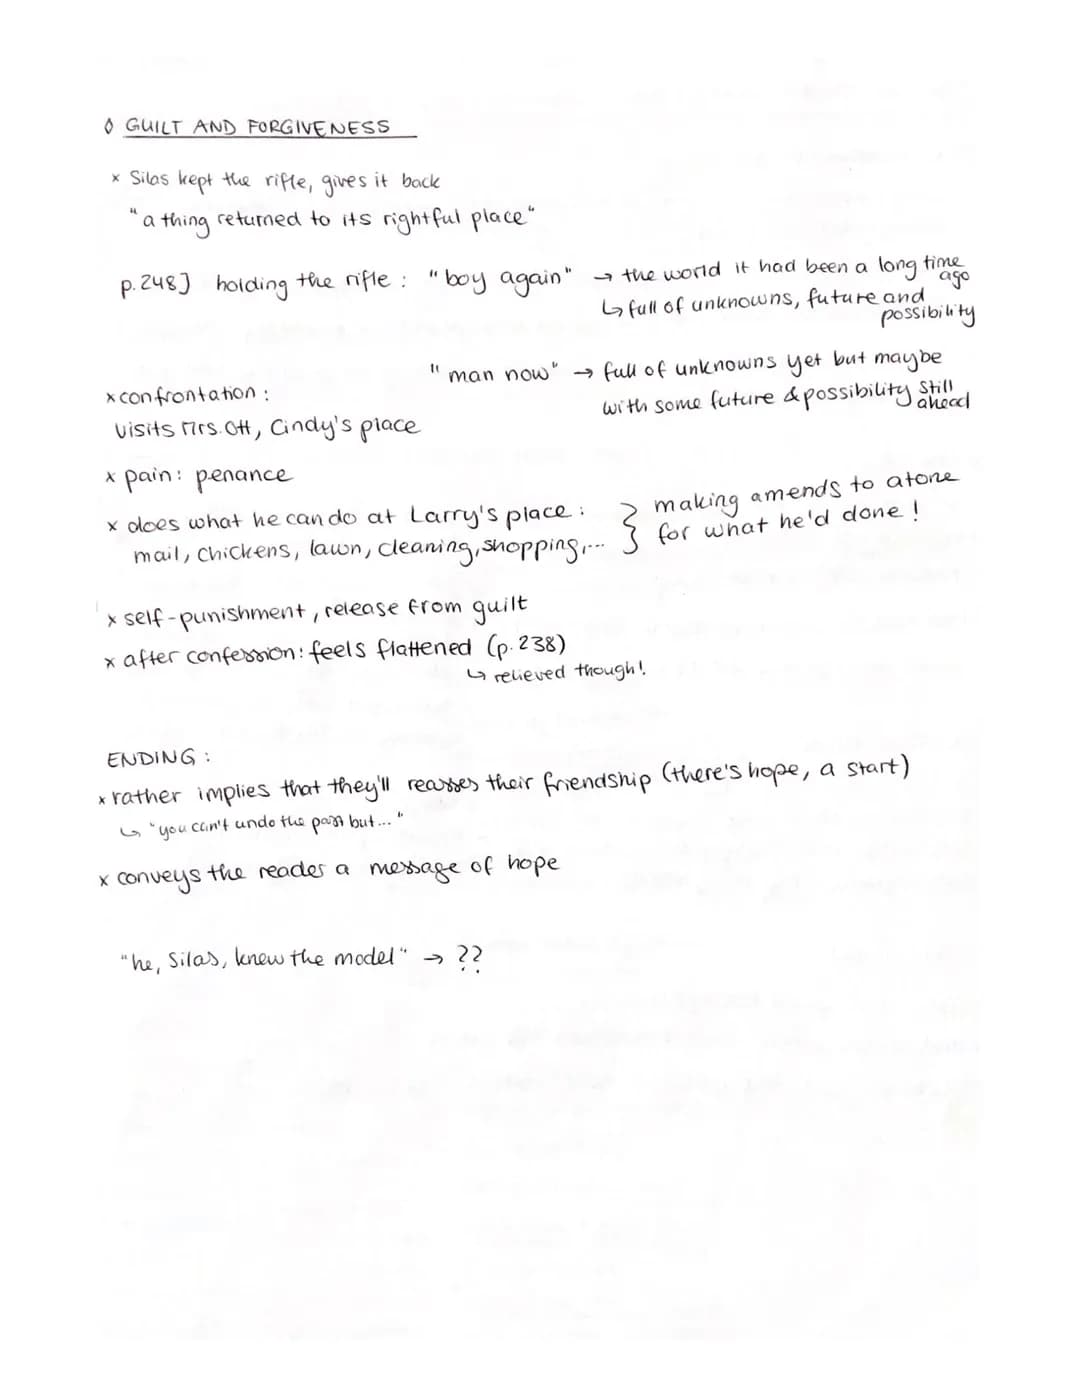 ◊ GUILT AND FORGIVENESS
x Silas kept the rifle, gives it back
"a thing returned to its rightful place"
p.248] holding the rifle : "boy again" → the world it had been a long time ago
↳ full of unknowns, future and possibility
"man now" → full of unknowns yet but maybe
with some future & possibility still ahead
x confrontation :
visits Mrs. Ott, Cindy's place
x pain: penance
x does what he can do at Larry's place :
mail, chickens, lawn, cleaning, shopping,...
} making amends to atone
for what he'd done !
x self-punishment, release from guilt
x after confession: feels flattened (p.238)
↳ relieved though!
ENDING :
x rather implies that they'll reasses their friendship (there's hope, a start)
↳ "you can't undo the past but..."
x conveys the reader a message of hope
"he, Silas, knew the model" → ??